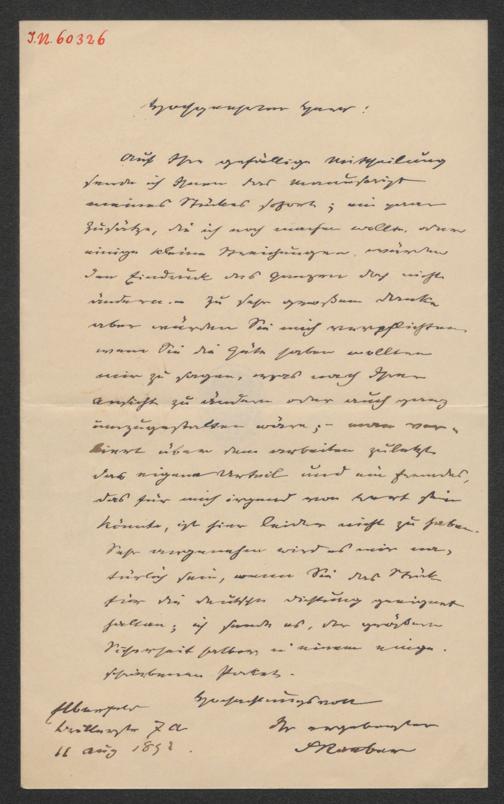 I.N. 60326
Hochgeehrter Herr!
Auf Ihre gefällige Mittheilung
sende ich Ihnen das Manuskript
meines Stückes sofort; ein paar
Zusätze, die ich noch machen wollte, oder
einige kleine Streichungen, würden
den Eindruck des Ganzen doch nicht
ändern. – Zu sehr großem Danke
aber würden Sie mich verpflichten,
wenn Sie die Güte haben wollten
mir zu sagen, was nach Ihrer
Ansicht zu ändern oder auch ganz
umzugestalten wäre; – man ver-
liert über dem Arbeiten zuletzt
das eigene Urteil und ein fremdes,
das für mich irgend von Wert sein
könnte, ist hier leider nicht zu haben.
Sehr angenehm wird es mir na-
türlich sein, wenn Sie das Stück
für die deutsche Dichtung geeignet
halten; ich sende es, der größeren
Sicherheit halber, in einem einge-
schriebenen Paket.
Hochachtungsvoll
Ihr ergebenster
Elberfeld
7a
11 Aug 189